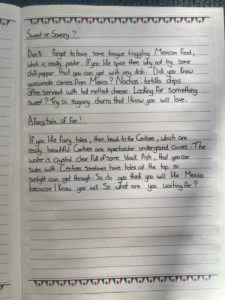 Sweet or Savory?
Don't forget to have some tongue tingling Mexican food,
which is really popular. If you like spice then why not try some
chilli pepper that you can get with any dish. Did you know
guacamole comes from Mexico? Nachos: tortilla chips
often served with hot melted cheese. Looking for something
sweet? Try a sugary churro that I know you will love.
A fairytale of fun!
If you like fairy tales, then head to the Cenotes, which are
really beautiful. Cenotes are spectacular underground caves. The
water is crystal clear full of some black fish, that you can
swim with. Cenotes sometimes have holes at the top so
sunlight can get through. So do you think you will like Mexico
because I know you will. So what are you waiting for?